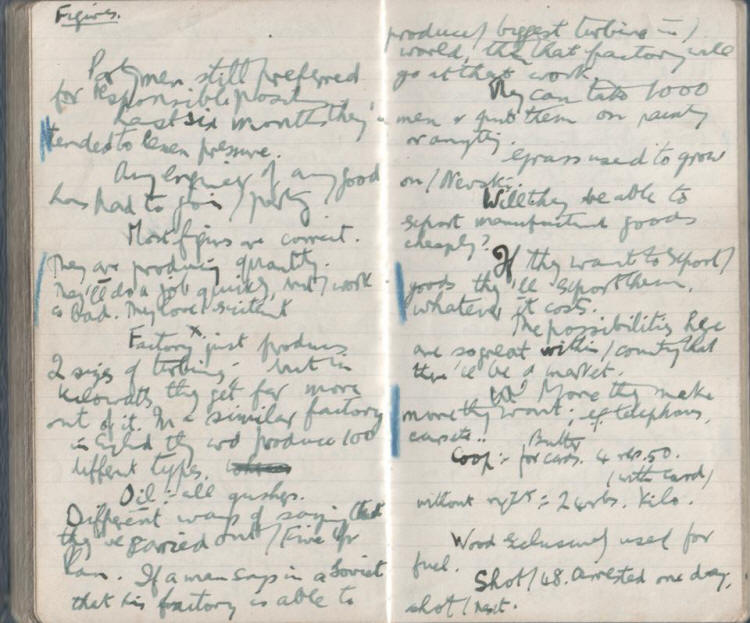 Figures.
Party men still preferred
for responsible posits
Last six months they've
tended to lessen pressure.
Any Engineer of any good
has had to join / party
Most figures are correct.
They are producing quantity.
They'll do a job quickly, but / work
is bad. They love excitement
Factory x just produces
2 sizes of turbine; but in
kilowatts they get far more
out of it. In a similar factory
in England they wd produce 100
different types.
Oil :- all gushes.
Different ways of saying that
they've carried out / Five Yr
Plan. If a man says in a Soviet
that his factory is able to
produce / biggest turbine in /
world, then that factory will
go at that work.
They can take 1000
men & put them on
or anything.
Grass used to grow
on / Nevski.
Will they be able to
export manufactured goods
cheaply?
If they want to export /
goods they'll export them,
whatever it costs.
The possibilities here
are so great within / country that
there'll be a market.
More they make
more they want: eg telephones,
carpets..
Butter
Coop :- for cards. 4 rbs. 50.
(with card)
without right = 24 rbs. Kilo.
Wood exclusively used for
fuel.
Shot / 48. Arrested one day,
shot / next.